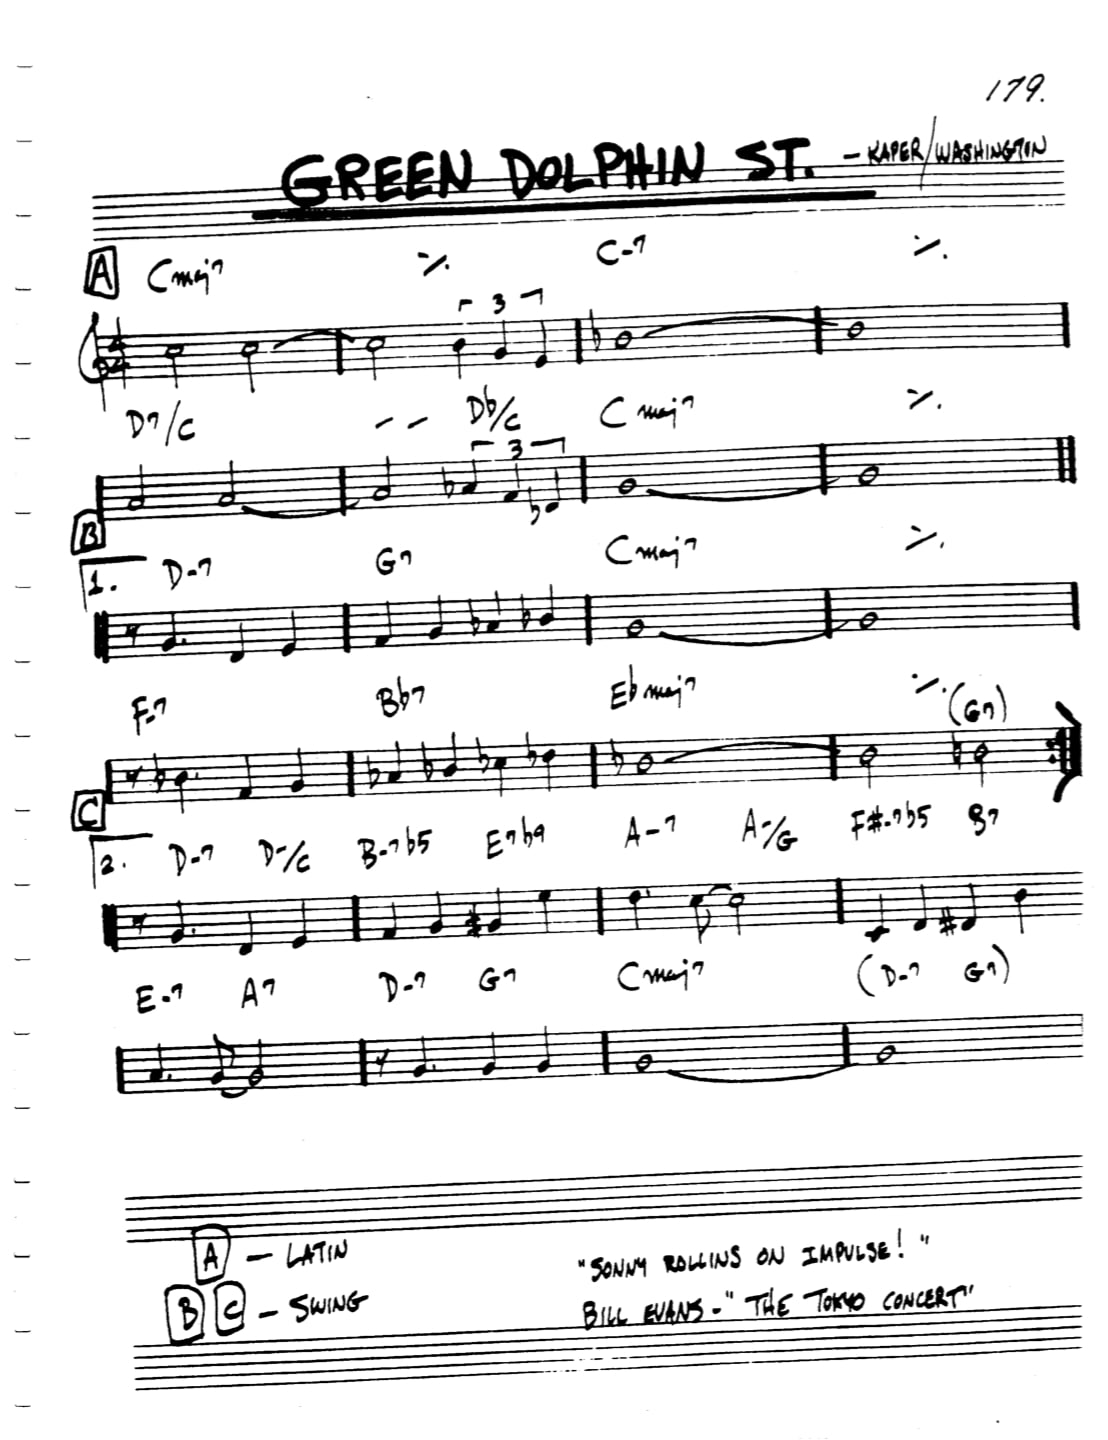 179.
GREEN DOLPHIN ST. - KAPER/WASHINGTON
A Cmaj7 ٪ C-7 ٪
3
D7/C - - Db/C Cmaj7 ٪
3
B
1. D-7 G7 Cmaj7 ٪
F-7 Bb7 Ebmaj7 ٪ (G7)
C
2. D-7 D-/C B-7b5 E7b9 A-7 A-/G F#-7b5 B7
E-7 A7 D-7 G7 Cmaj7 (D-7 G7)
A - LATIN "SONNY ROLLINS ON IMPULSE!"
B C - SWING BILL EVANS - "THE TOKYO CONCERT"